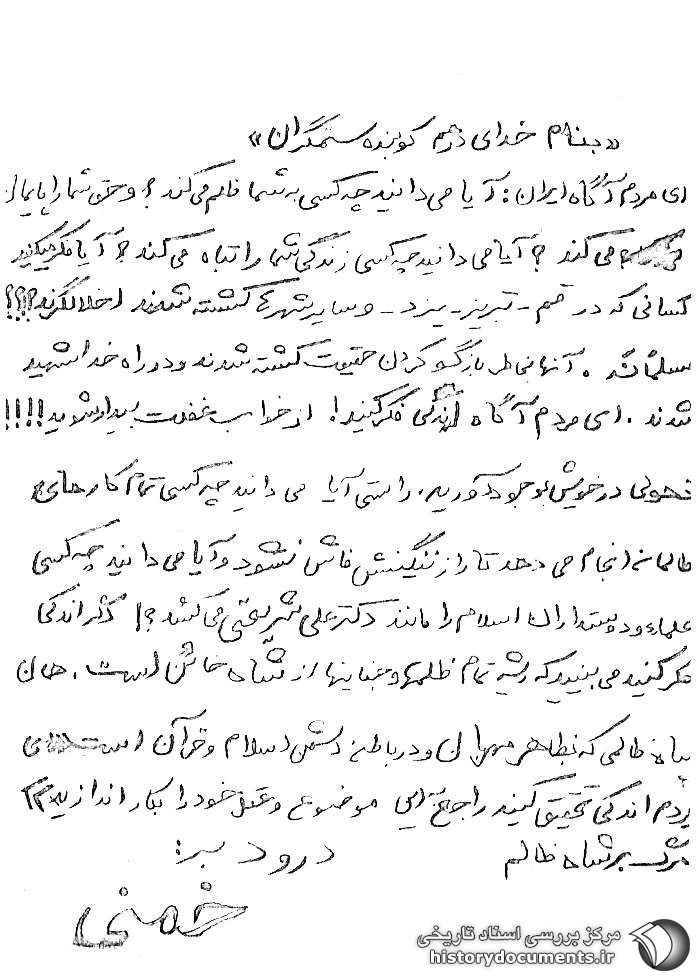 «بنام خدای درهم کوبنده ستمگران»
ای مردم آگاه ایران: آیا می دانید چه کسی به شما ظلم می کند؟ و حق شما را پایمال
می کند؟ آیا می دانید چه کسی زندگی شما را تباه می کند؟ آیا فکر میکنید
کسانی که در قم - تبریز - یزد - و سایر شهرها کشته شدند اخلالگرند؟؟؟
مسلماً نه. آنها بخاطر بازگو کردن حقیقت کشته شدند و در راه خدا شهید
شدند. ای مردم آگاه اندکی فکر کنید! از خواب غفلت بیدار شوید!!!!
تحولی در خویش بوجود آورید. راستی آیا می دانید چه کسی تمام کارهای
ظالمانه انجام می دهد تا راز ننگینش فاش نشود و آیا می دانید چه کسی
علماء و دوستداران اسلام را مانند دکتر علی شریعتی می کشد؟! اگر اندکی
فکر کنید می بینید که ریشه تمام ظلمها و جنایتها از شاه خائن است. همان
شاه ظالمی که بظاهر مهربان و در باطن دشمن اسلام و قرآن است ای
مردم اندکی تحقیق کنید راجع به این موضوع و عقل خود را بکار اندازید
مرگ بر شاه ظالم درود بر:
خمینی
مرکز بررسی اسناد تاریخی
historydocuments.ir